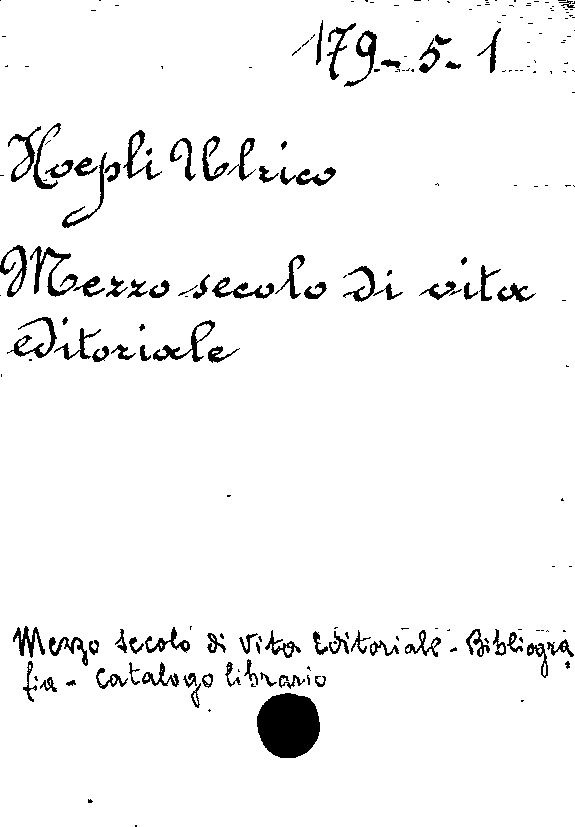 179-5-1
Hoepli Ulrico
Mezzo secolo di vita
editoriale
Mezzo secolo di vita Editoriale - Bibliogra
fia - Catalogo librario